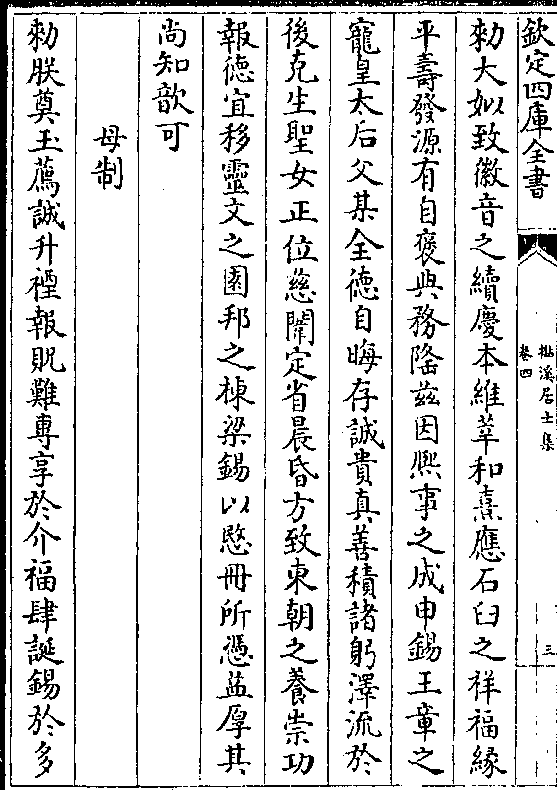 欽定四庫全書
㮚溪居士集
卷四
三
勅大姒致徽音之續慶本維莘和熹應石臼之祥福緣
平壽發源有自褒典務隆兹因熈事之成申錫王章之
寵皇太后父某全徳自晦存誠貴真善積諸躬澤流於
後克生聖女正位慈闈定省晨昏方致東朝之養崇功
報徳宜移靈文之園邦之棟梁錫以愍冊所憑益厚其
尚知歆可
母制
勅朕奠玉薦誠升禋報貺難專享於介福肆誕錫於多